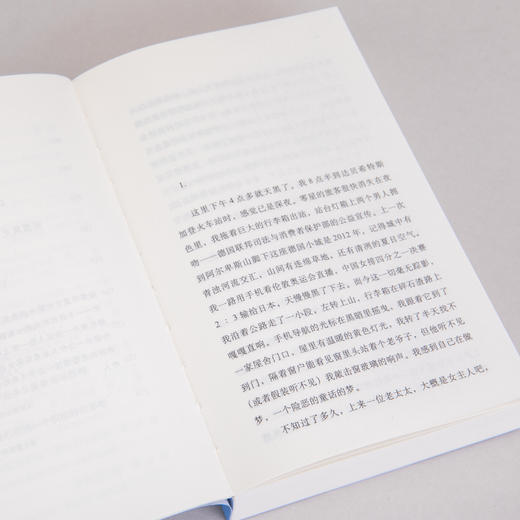 1.
这里下午4点多就天黑了，我8点半到达贝希特斯
加登火车站时，感觉已是深夜，零星的旅客很快消失在夜
色里，我拖着巨大的行李箱出站，站台灯箱上两个男人拥
吻——德国联邦司法与消费者保护部的公益宣传。上一次
到阿尔卑斯山脚下这座德国小城是2012年，记得城中有
青浊河流交汇，山间有连绵草地，还有清冽的夏日空气，
我一路用手机看伦敦奥运会直播，中国女排四分之一决赛
2：3输给日本，天慢慢黑了下去，而今这一切毫无踪影，
我沿着公路走了一小段，左转上山，行李箱在碎石道路上
嘎嘎直响，手机导航的光标在黑暗里摇曳，我跟着它到了
一家屋舍门口，屋里有温暖的黄色灯光，我转了半天找不
到门，隔着窗户能看见窗里头站着个老爷子，但他听不见
（或者假装听不见）我敲击窗玻璃的响声。我感到自己在做
梦，一个险恶的童话的梦。
不知过了多久，上来一位老太太，大概是女主人吧，